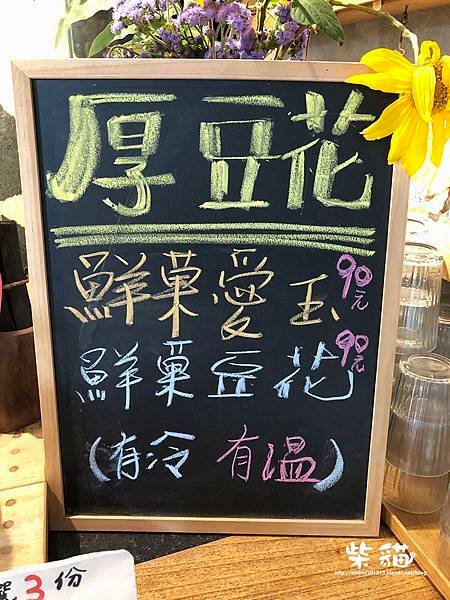 厚豆花
鮮菓愛玉 90元
鮮菓豆花 90元
(有冷 有溫)
3份
柴貓